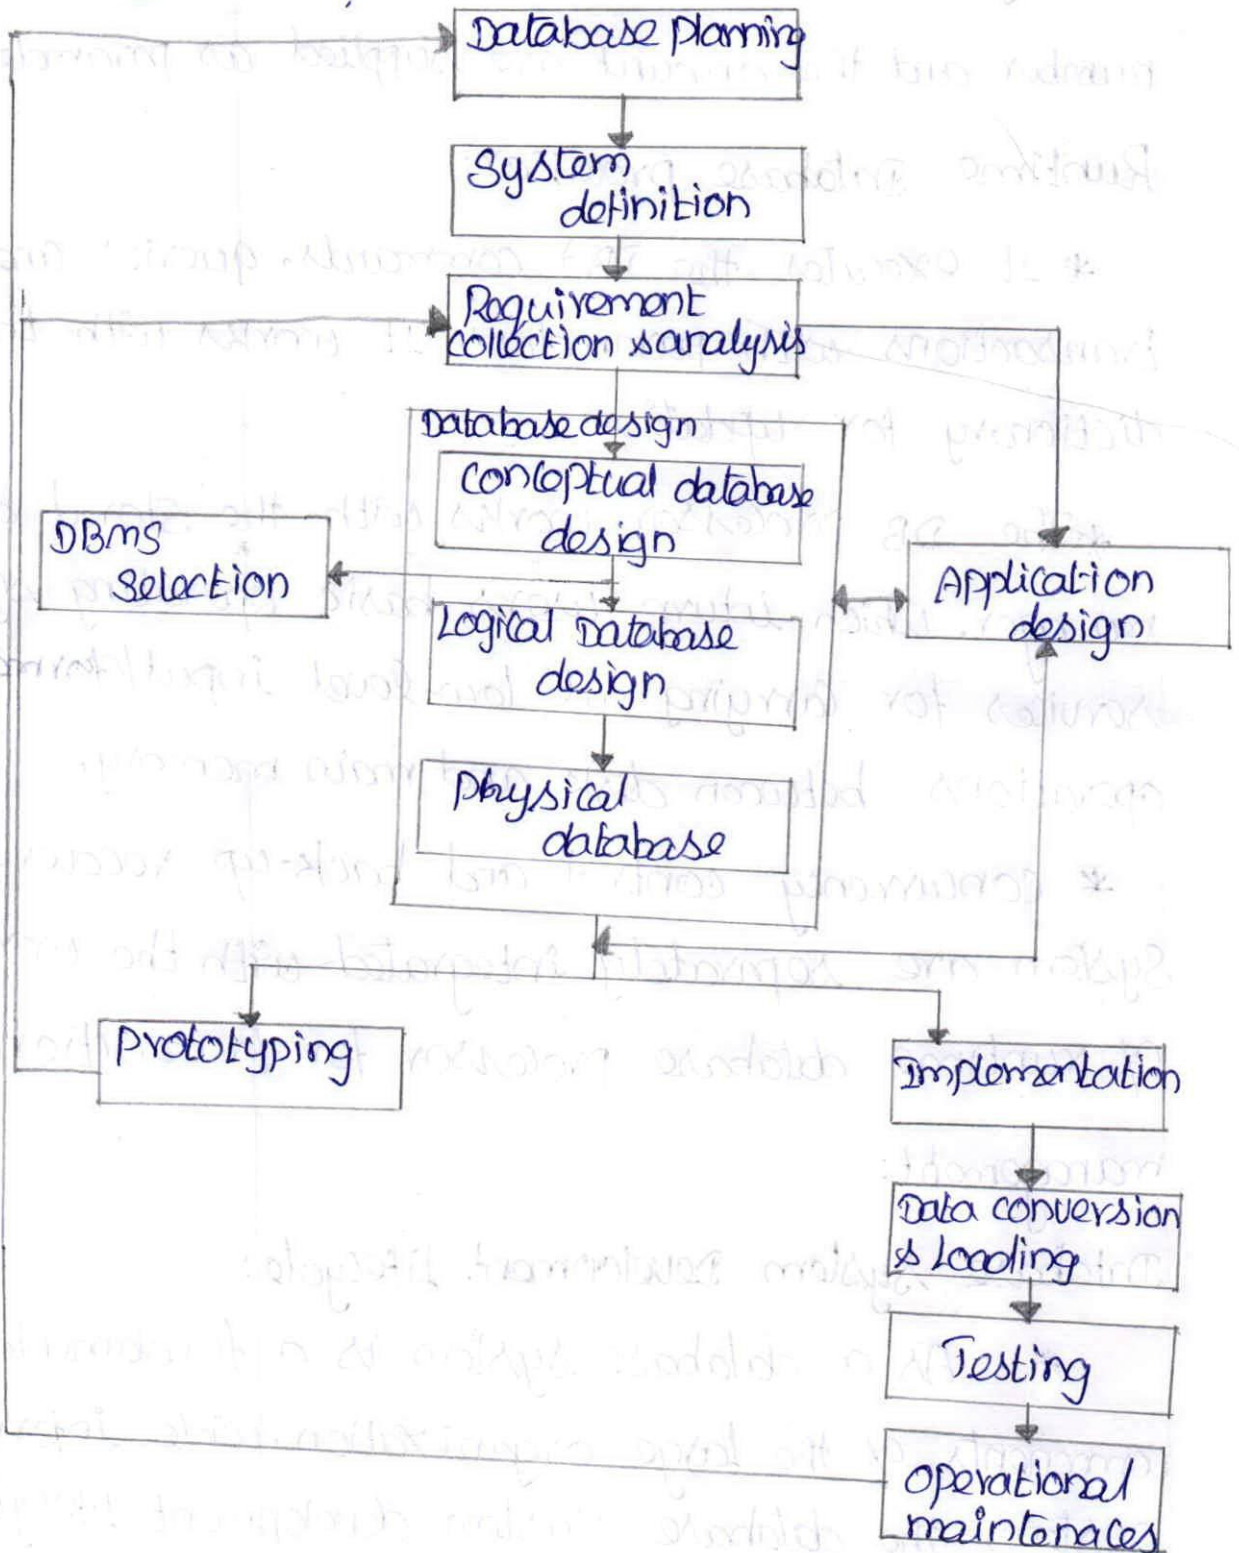 Database Planning
System
definition
Requirement
collection & analysis
Database design
Conceptual database
design
DBMS
Selection
Application
design
Logical Database
design
Physical
database
Prototyping
Implementation
Data conversion
& Loading
Testing
Operational
maintenaces